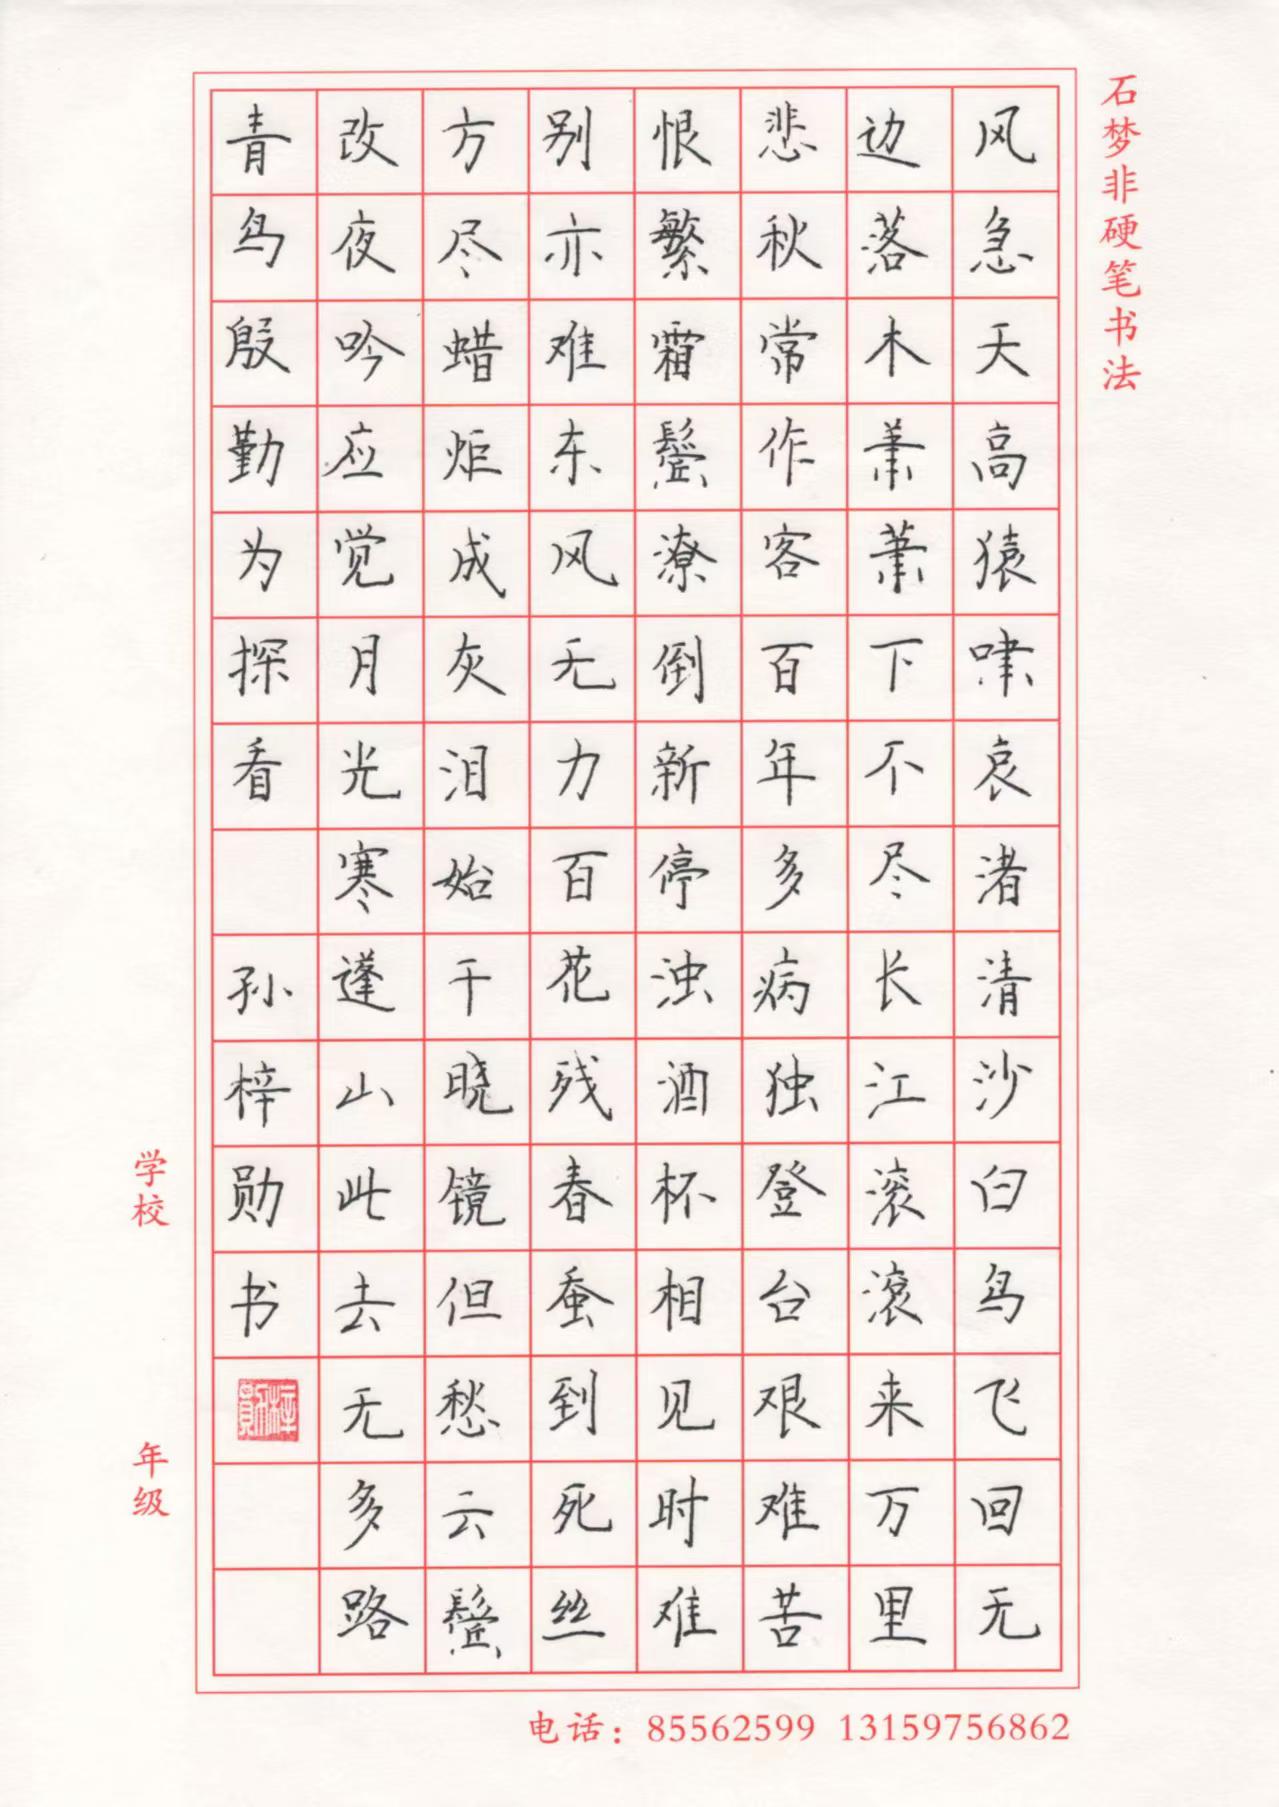 石梦非硬笔书法
风急天高猿啸哀渚清沙白鸟飞回无
边落木萧萧下不尽长江滚滚来万里
悲秋常作客百年多病独登台艰难苦
恨繁霜鬓潦倒新停浊酒杯相见时难
别亦难东风无力百花残春蚕到死丝
方尽蜡炬成灰泪始干晓镜但愁云鬓
改夜吟应觉月光寒蓬山此去无多路
青鸟殷勤为探看 孙梓勋书
梓勛
学校 年级
电话：85562599 13159756862